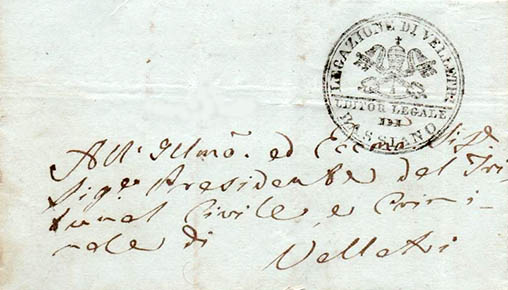 LEGAZIONE DI VELLETRI
UDITOR LEGALE
DI
BASSIANO
All' Illmo. ed Eccmo Sigr.
Sigr. Presidente del Tri
bunal Civile e Crimi-
nale di
Velletri